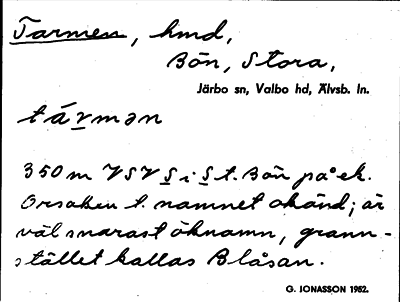 Tarmen, hmd,
Bön, Stora,
Järbo sn, Valbo hd, Älvsb. ln.
tármən
350 m VSV S i St. Bön på ek.
Orsaken t. namnet okänd; är
väl snarast öknamn, grann-
stället kallas Blåsan.
G. IONASSON 1952.